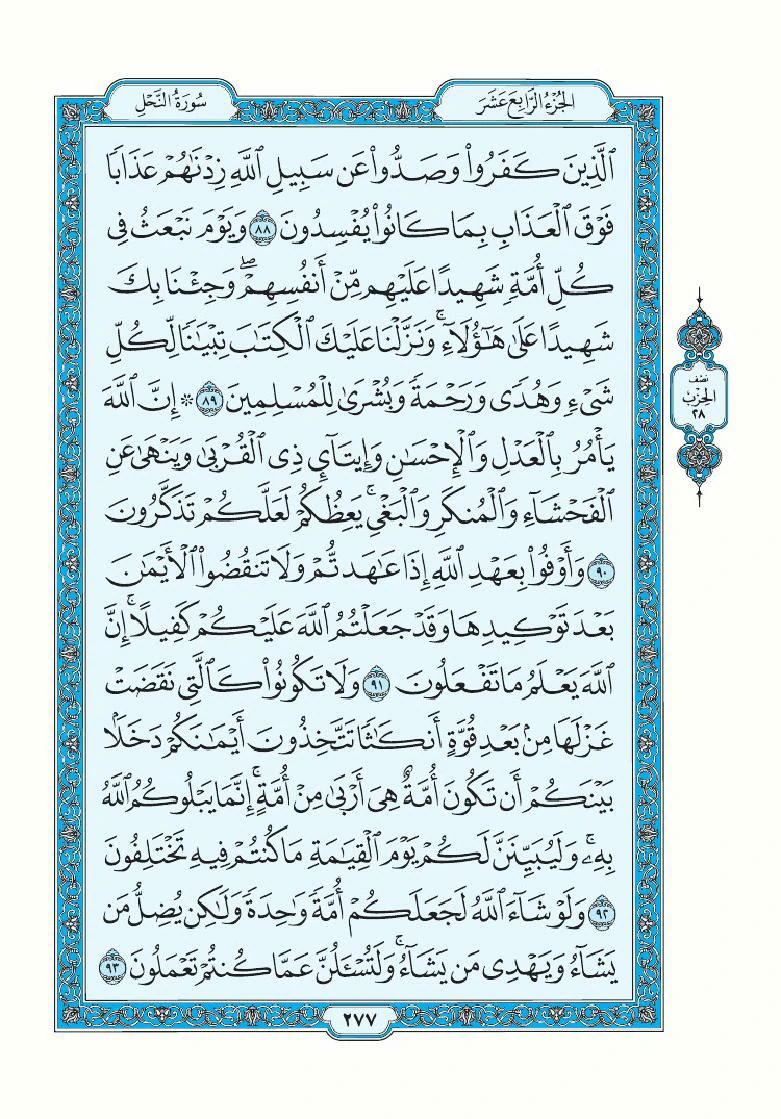 الجزء الرابع عشر
سورة النحل
ٱلَّذِينَ كَفَرُوا۟ وَصَدُّوا۟ عَن سَبِيلِ ٱللَّهِ زِدْنَٰهُمْ عَذَابًا
فَوْقَ ٱلْعَذَابِ بِمَا كَانُوا۟ يُفْسِدُونَ ٨٨ وَيَوْمَ نَبْعَثُ فِى
كُلِّ أُمَّةٍ شَهِيدًا عَلَيْهِم مِّنْ أَنفُسِهِمْ ۖ وَجِئْنَا بِكَ
شَهِيدًا عَلَىٰ هَٰٓؤُلَآءِ ۚ وَنَزَّلْنَا عَلَيْكَ ٱلْكِتَٰبَ تِبْيَٰنًا لِّكُلِّ
شَىْءٍ وَهُدًى وَرَحْمَةً وَبُشْرَىٰ لِلْمُسْلِمِينَ ٨٩ ۞ إِنَّ ٱللَّهَ
يَأْمُرُ بِٱلْعَدْلِ وَٱلْإِحْسَٰنِ وَإِيتَآئِ ذِى ٱلْقُرْبَىٰ وَيَنْهَىٰ عَنِ
ٱلْفَحْشَآءِ وَٱلْمُنكَرِ وَٱلْبَغْىِ ۚ يَعِظُكُمْ لَعَلَّكُمْ تَذَكَّرُونَ
٩٠ وَأَوْفُوا۟ بِعَهْدِ ٱللَّهِ إِذَا عَٰهَدتُّمْ وَلَا تَنقُضُوا۟ ٱلْأَيْمَٰنَ
بَعْدَ تَوْكِيدِهَا وَقَدْ جَعَلْتُمُ ٱللَّهَ عَلَيْكُمْ كَفِيلًا ۚ إِنَّ
ٱللَّهَ يَعْلَمُ مَا تَفْعَلُونَ ٩١ وَلَا تَكُونُوا۟ كَٱلَّتِى نَقَضَتْ
غَزْلَهَا مِنۢ بَعْدِ قُوَّةٍ أَنكَٰثًا تَتَّخِذُونَ أَيْمَٰنَكُمْ دَخَلًۢا
بَيْنَكُمْ أَن تَكُونَ أُمَّةٌ هِىَ أَرْبَىٰ مِنْ أُمَّةٍ ۚ إِنَّمَا يَبْلُوكُمُ ٱللَّهُ
بِهِۦ ۚ وَلَيُبَيِّنَنَّ لَكُمْ يَوْمَ ٱلْقِيَٰمَةِ مَا كُنتُمْ فِيهِ تَخْتَلِفُونَ
٩٢ وَلَوْ شَآءَ ٱللَّهُ لَجَعَلَكُمْ أُمَّةً وَٰحِدَةً وَلَٰكِن يُضِلُّ مَن
يَشَآءُ وَيَهْدِى مَن يَشَآءُ ۚ وَلَتُسْـَٔلُنَّ عَمَّا كُنتُمْ تَعْمَلُونَ ٩٣
نصف
الحزب
٢٨
٢٧٧